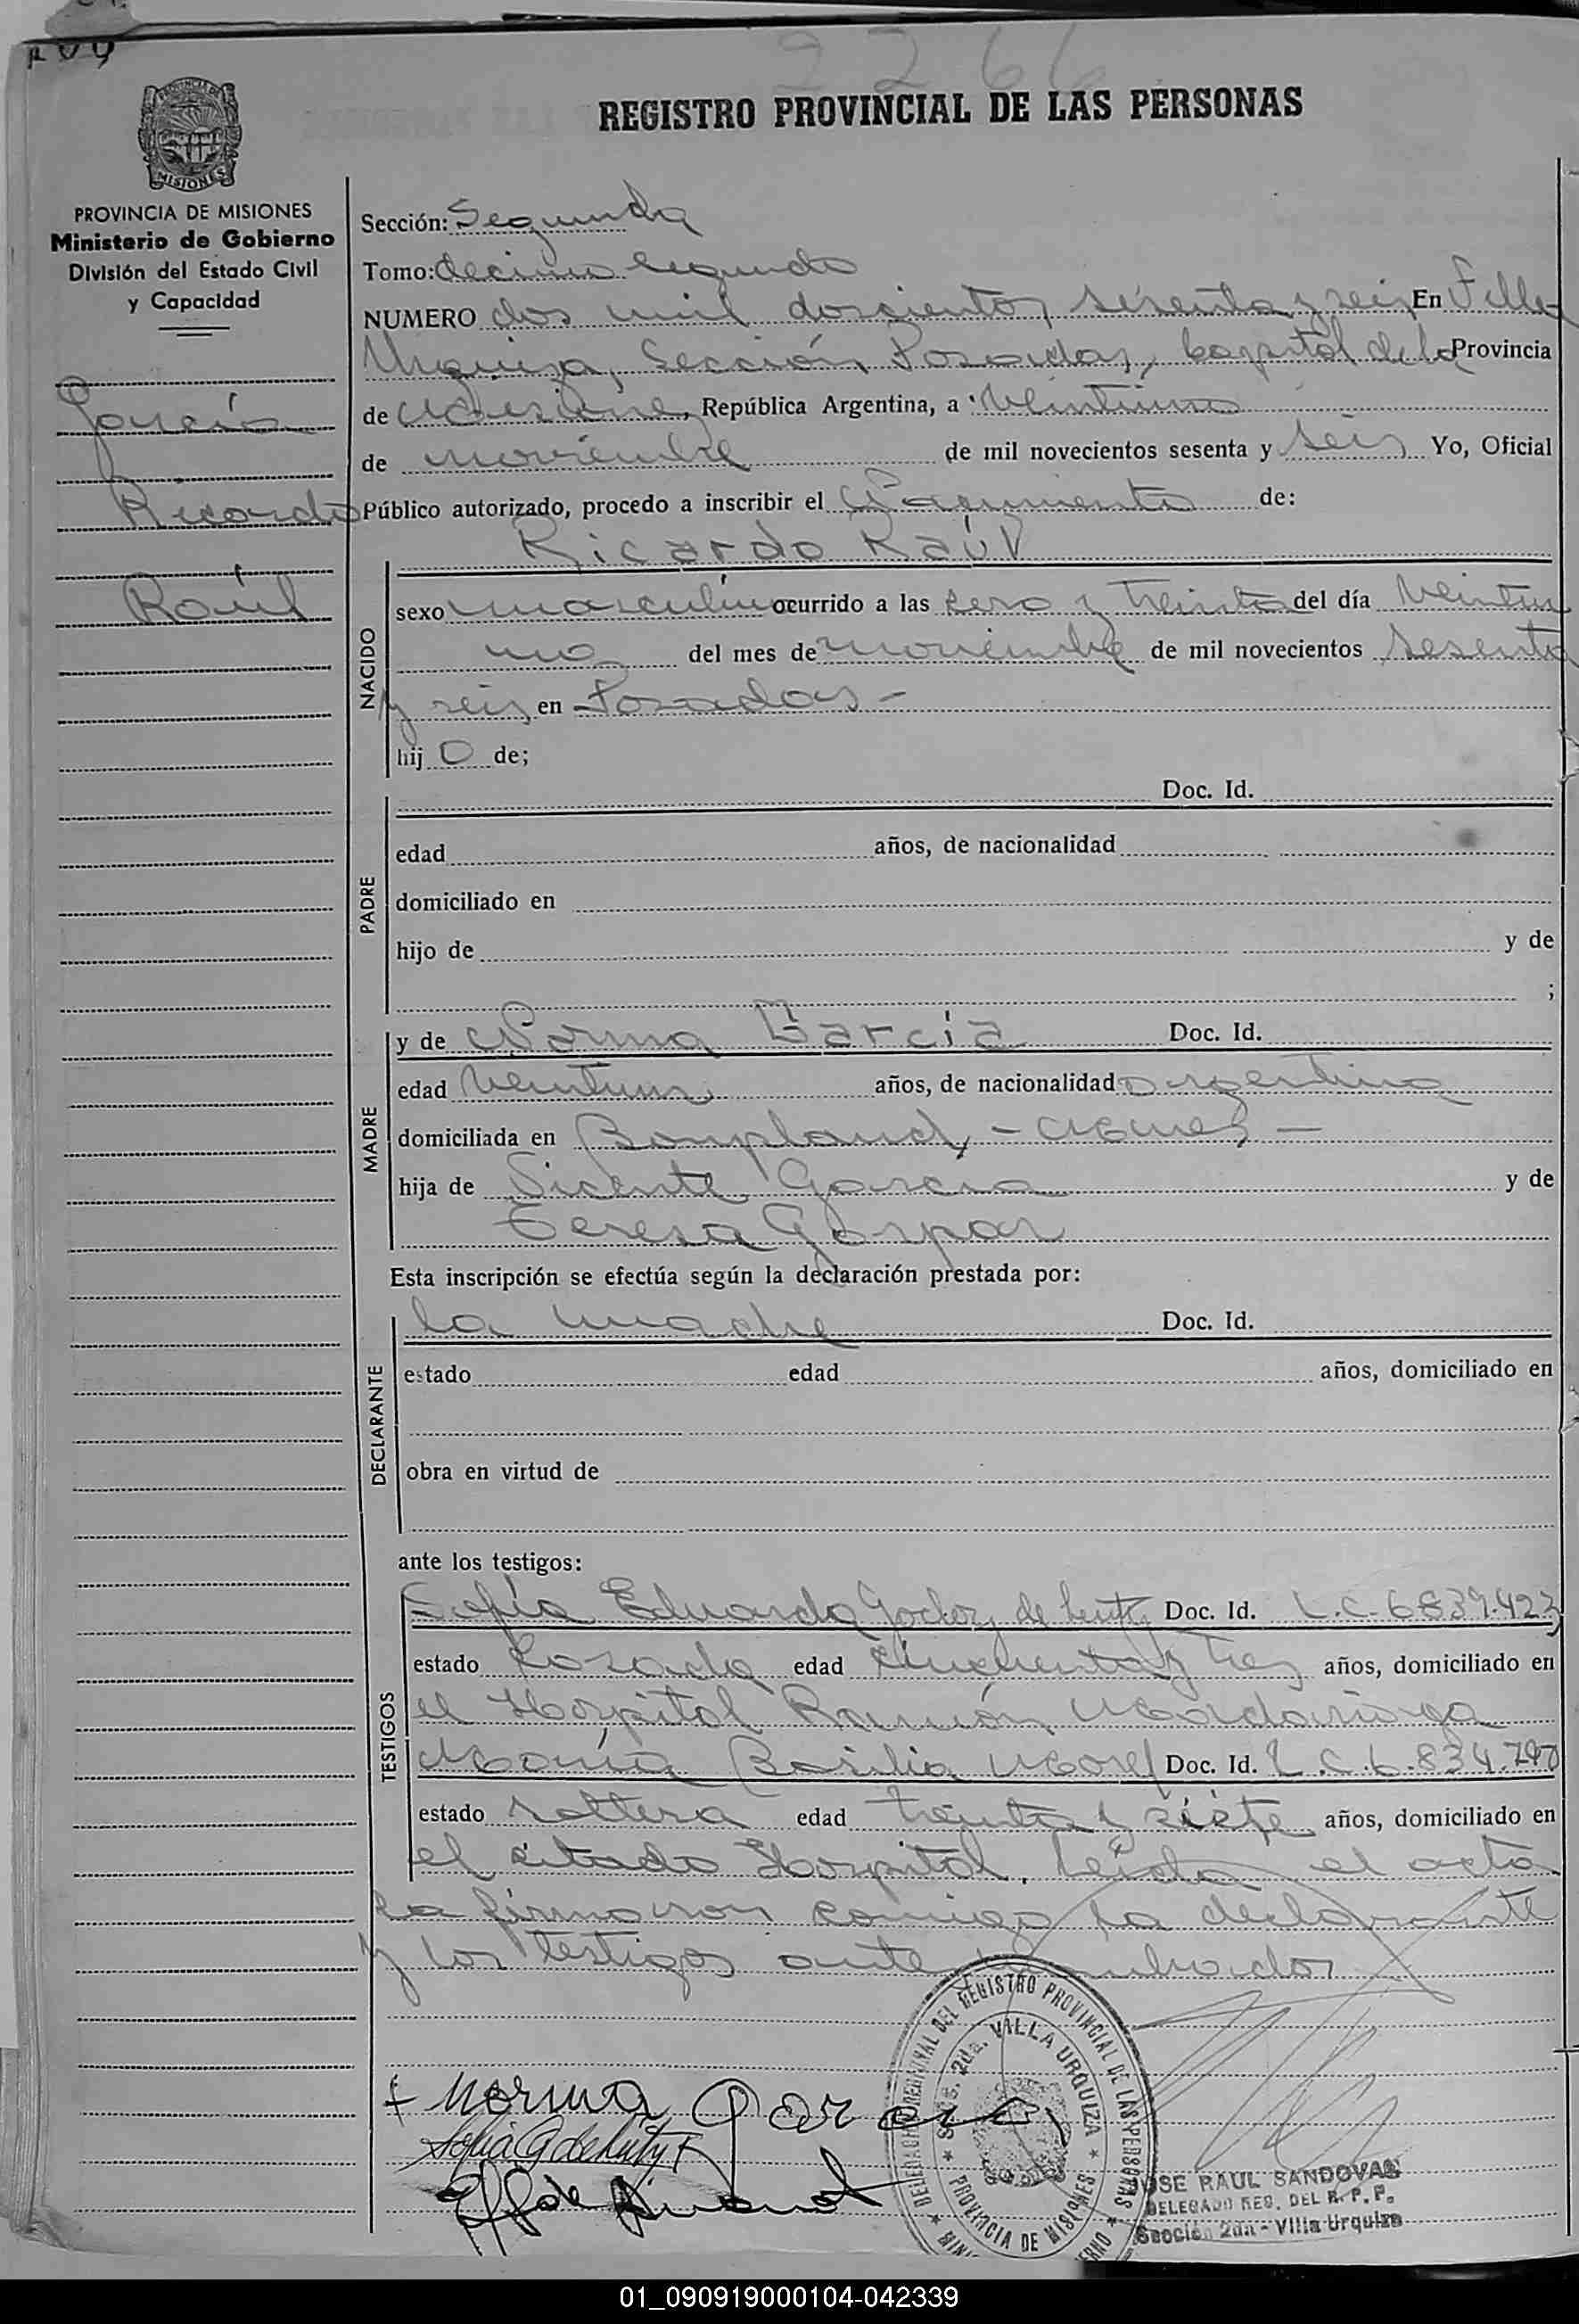 2266
REGISTRO PROVINCIAL DE LAS PERSONAS
MISIONES
PROVINCIA DE MISIONES
Ministerio de Gobierno
División del Estado Civil
y Capacidad
García
Ricardo
Raúl
Sección: Segunda
Tomo: decimo segundo
NUMERO dos mil doscientos sesenta y seis En Villa
Urquiza, Sección Posadas, Capital de la Provincia
de Misiones, República Argentina, a veintiuno
de noviembre de mil novecientos sesenta y seis Yo, Oficial
Público autorizado, procedo a inscribir el Nacimiento de:
Ricardo Raúl
NACIDO
sexo masculino ocurrido a las cero y treinta del día veintiu
no del mes de noviembre de mil novecientos sesenta
y seis en Posadas -
hij o de;
PADRE
Doc. Id.
edad años, de nacionalidad
domiciliado en
hijo de y de
;
MADRE
y de Norma García Doc. Id.
edad veintiun años, de nacionalidad argentina
domiciliada en Bonpland, - Mnes -
hija de Vicente García y de
Teresa Gaspar
Esta inscripción se efectúa según la declaración prestada por:
DECLARANTE
la madre Doc. Id.
estado edad años, domiciliado en
obra en virtud de
ante los testigos:
TESTIGOS
Sofía Eduarda Godoy de Doc. Id. L.C. 6839.423
estado Casada edad cincuenta y tres años, domiciliado en
el Hospital Ramón Madariaga
María Basilia Morel Doc. Id. L.C. 6.834.790
estado soltera edad treinta y siete años, domiciliado en
el citado Hospital. Leída el acta
la firmaron conmigo la declarante
y los testigos ante
+ Norma Garcia
Sofia G de
DELEGACION REGIONAL DEL REGISTRO PROVINCIAL DE LAS PERSONAS
2da. VILLA URQUIZA
PROVINCIA DE MISIONES
JOSE RAUL SANDOVAL
DELEGADO REG. DEL R. P. P.
Sección 2da - Villa Urquiza
01_090919000104-042339